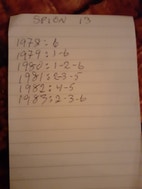 SPION 13
1978 = 6
1979 = 1-6
1980 = 1-2-6
1981 = 3-5
1982 = 4-5
1983 = 2-3-6